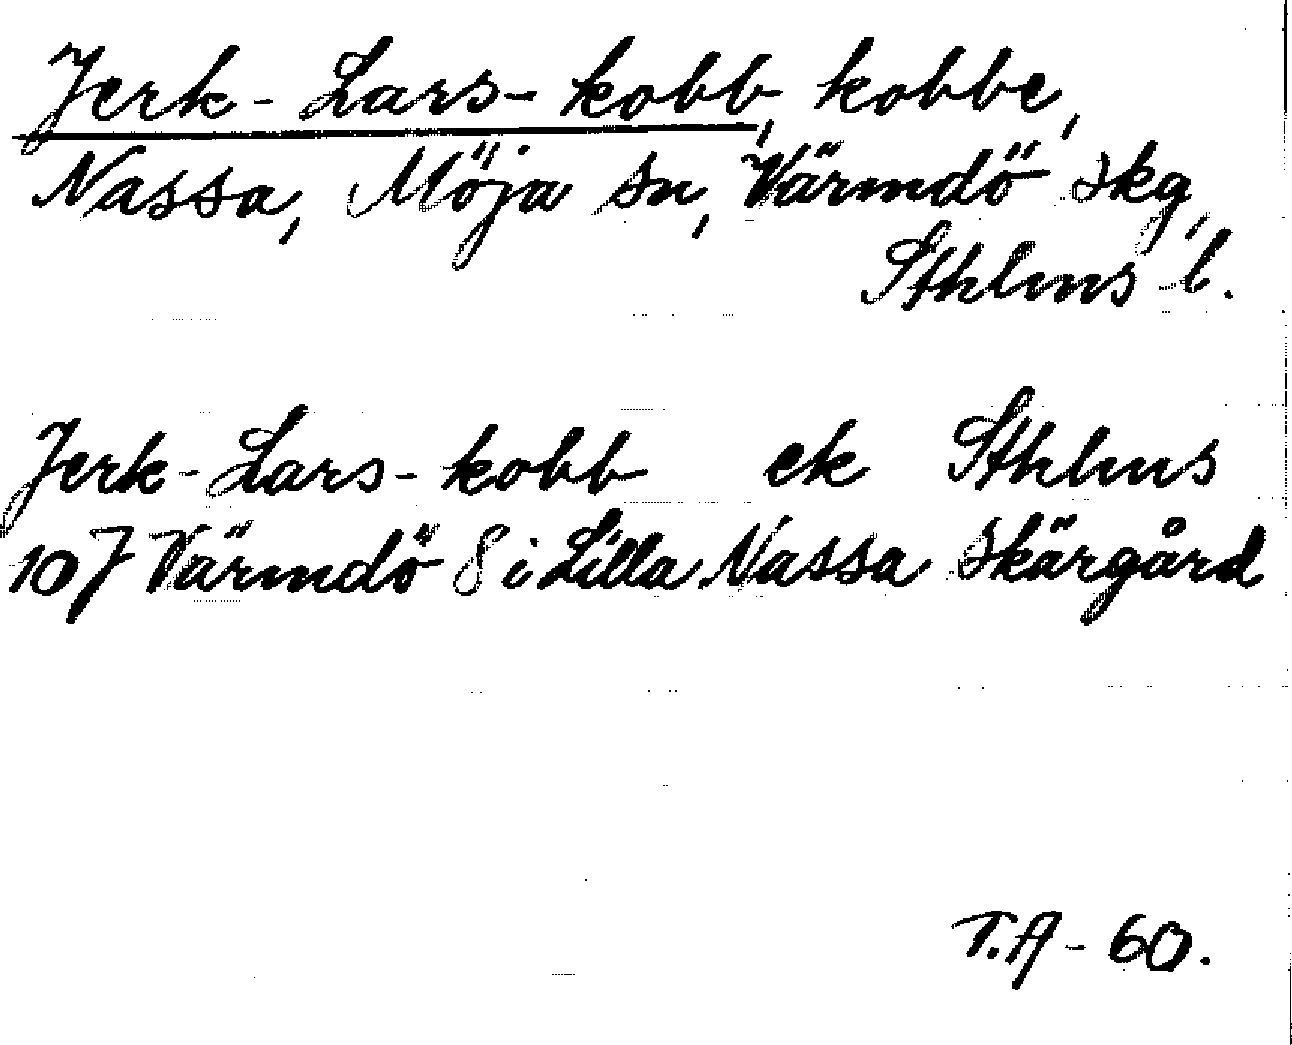 Jerk-Lars-kobb, kobbe,
Nassa, Möja sn, Värmdö skg,
Sthlms l.
Jerk-Lars-kobb ek Sthlms
107 Värmdö 8 i Lilla Nassa skärgård
T.A-60.